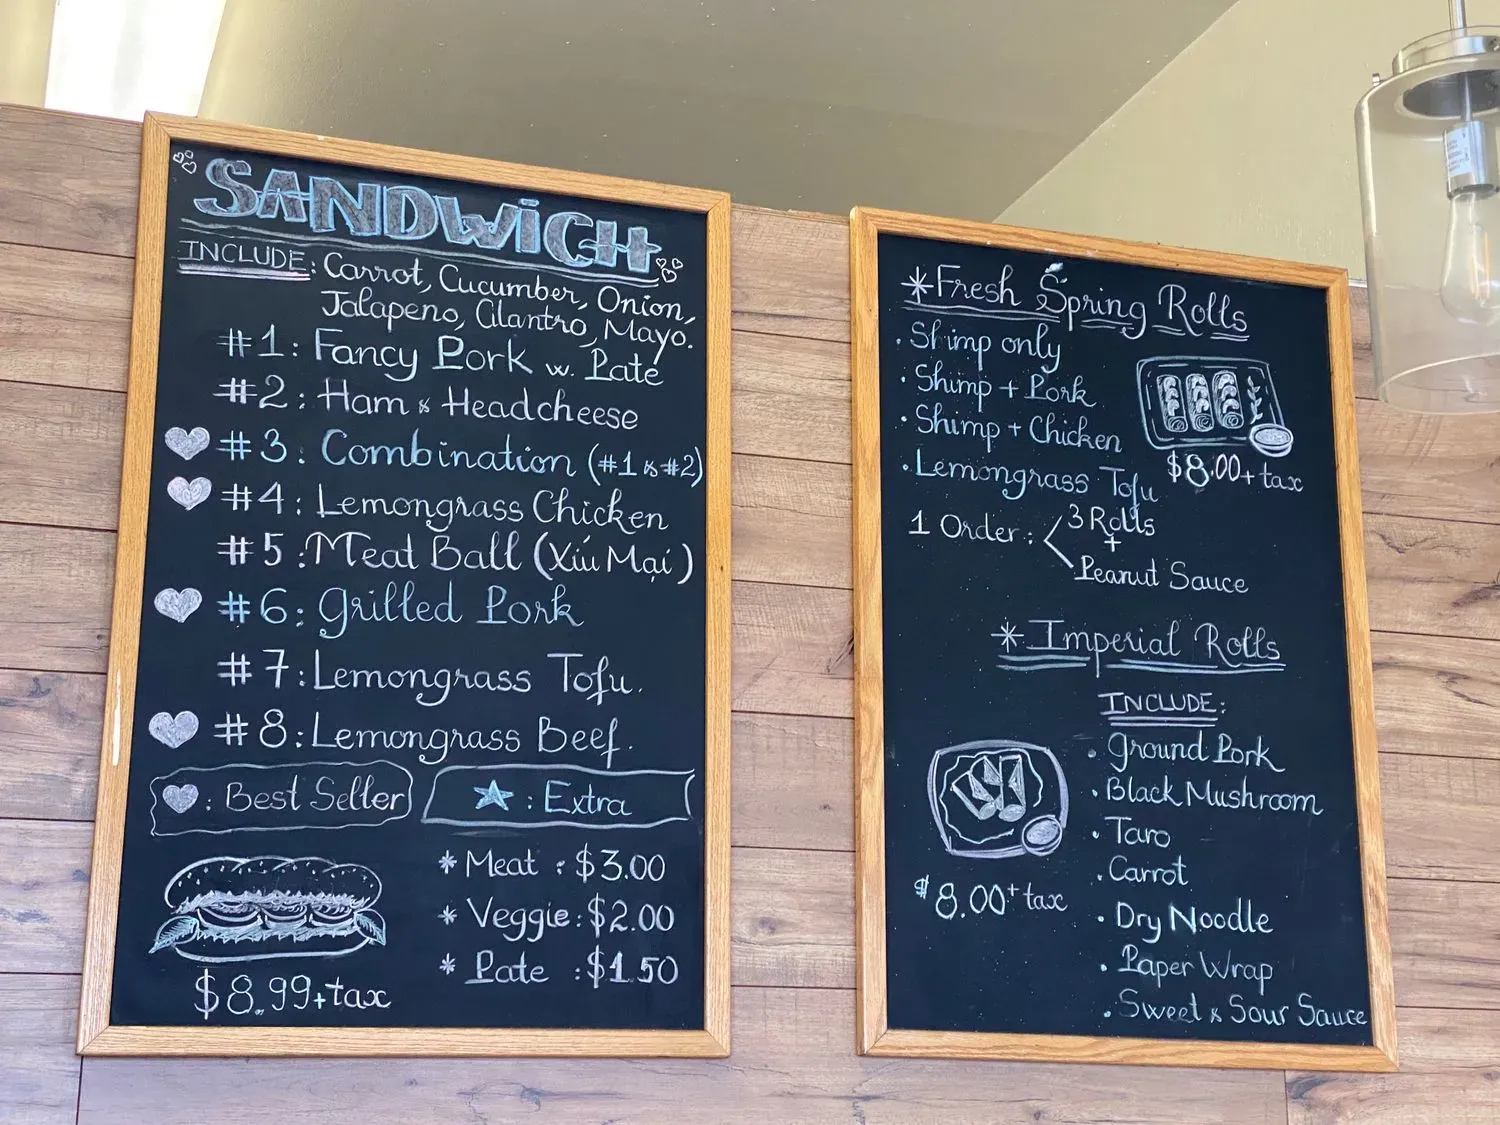 SANDWICH
INCLUDE: Carrot, Cucumber, Onion,
Jalapeno, Cilantro, Mayo.
#1: Fancy Pork w. Pate
#2: Ham & Headcheese
#3: Combination (#1 & #2)
#4: Lemongrass Chicken
#5: Meat Ball (Xíu Mại)
#6: Grilled Pork
#7: Lemongrass Tofu.
#8: Lemongrass Beef.
♥: Best Seller
★: Extra
* Meat : $3.00
* Veggie: $2.00
* Pate : $1.50
$8.99+tax
*Fresh Spring Rolls
· Shimp only
· Shimp + Pork
· Shimp + Chicken
· Lemongrass Tofu
$8.00+tax
1 Order: 3 Rolls
+
Peanut Sauce
*Imperial Rolls
INCLUDE:
· Ground Pork
· Black Mushroom
· Taro
· Carrot
· Dry Noodle
· Paper Wrap
· Sweet & Sour Sauce
$8.00+tax